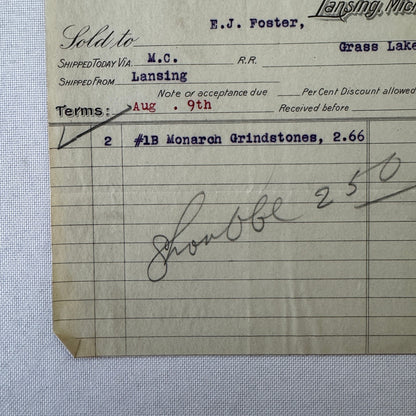 Lansing, Mich
E.J. Foster,
Sold to
Grass Lake
SHIPPED TODAY VIA M.C. R.R.
SHIPPED FROM Lansing
Note or acceptance due Per Cent Discount allowed
Terms: Aug . 9th Received before
2 #1B Monarch Grindstones, 2.66
Should be 2 50